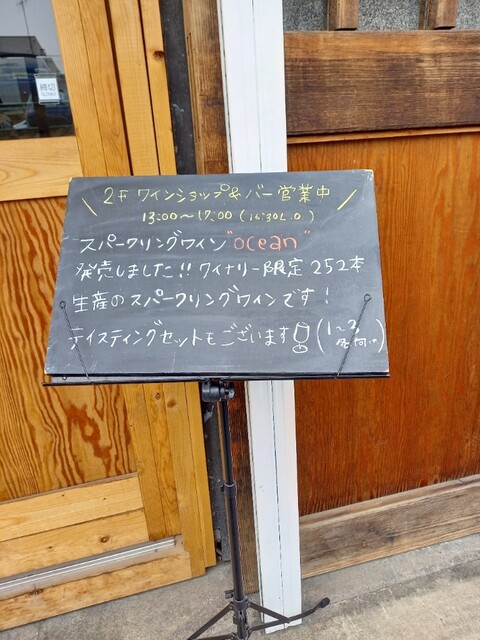 締切
\ 2F ワインショップ&バー 営業中 /
13:00～17:00 (16:30L.O)
スパークリングワイン"ocean"
発売しました!! ワイナリー限定 252本
生産のスパークリングワインです!
テイスティングセットもございます (1～2